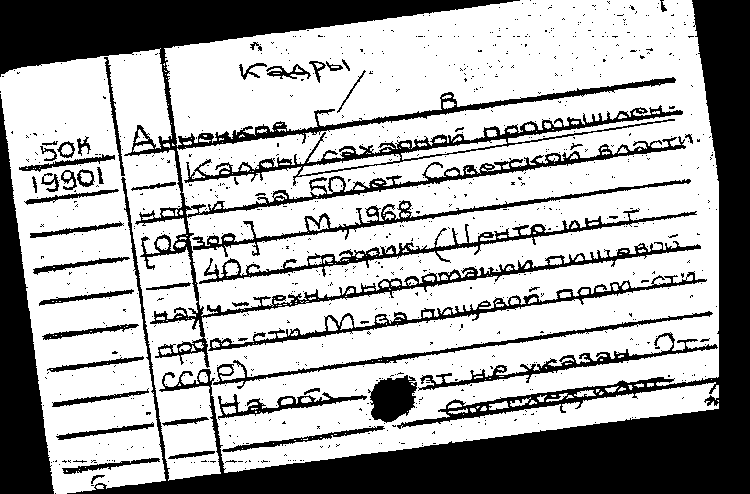 Кадры
50К Анненков, Г В
19901 Кадры сахарной промышлен-
ности за 50 лет Советской власти.
[Обзор] М., 1968.
40 с. с график. (Центр. ин-т
науч.-техн. информации пищевой
пром-сти М-ва пищевой пром-сти
СССР)
На обл. авт. не указан. От-
См след карт.
Б